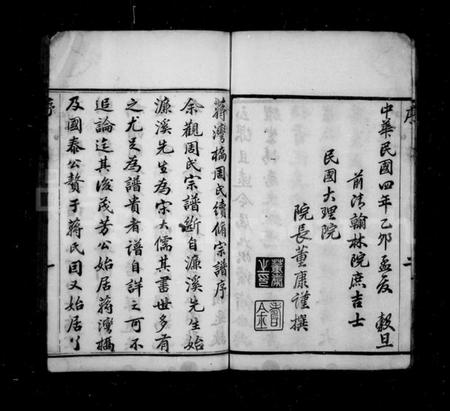 中華民國四年乙卯孟夏 穀旦
前清翰林院庶吉士
民國大理院
院長董康謹撰
序
二
蔣灣橋周氏續脩宗譜序
余觀周氏宗譜斷自濂溪先生始
濂溪先生為宋大儒其書世多有
之尤足為譜貴者譜自詳之可不
追論迄其後茂芳公始居蔣灣橋
及國泰公贅于蔣氏因又始居丫
序
一